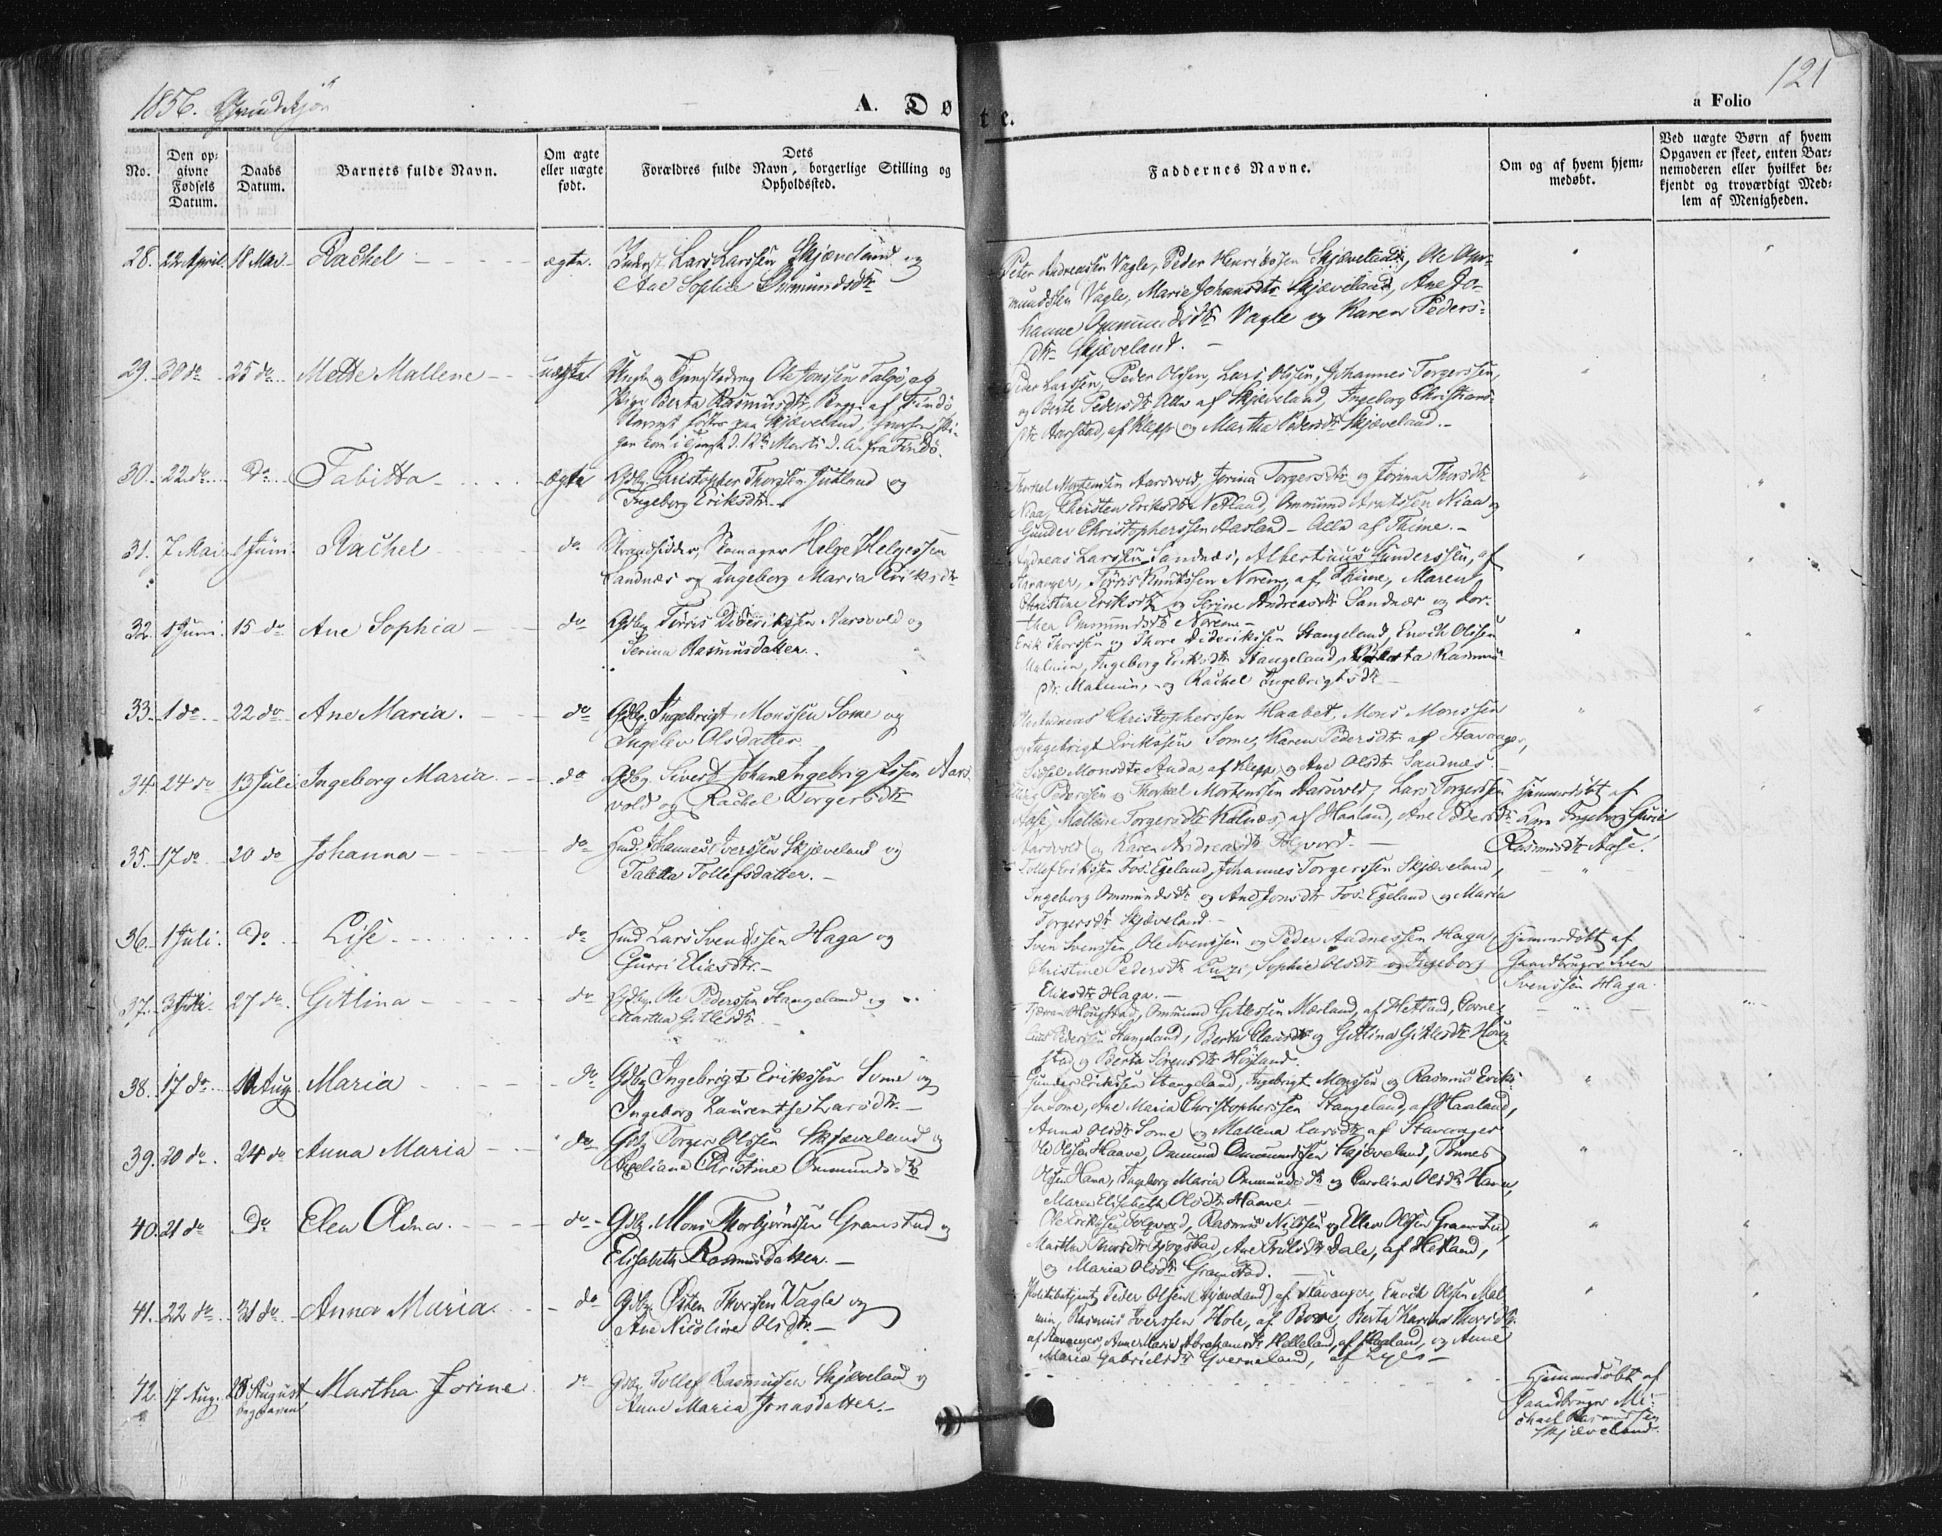 1856.
121
A. Døbte.
a Folio
No.
Den opgivne Fødsels Datum.
Daabs Datum.
Barnets fulde Navn.
Om ægte eller uægte født.
Dets Forældres fulde Navn, borgerlige Stilling og Opholdssted.
Faddernes Navne.
Om og af hvem hjemmedøbt.
Ved uægte Børn af hvem Opgaven er skeet, enten Barnemoderen eller hvilket bekjendt og troværdigt Medlem af Menigheden.
28. 22 April. 18 Mai Rachel ægte. Inderst Lars Larssen Skjæveland og
Ane Sophia Ommundsdtr
Peter Andreassen Vagle, Peder Henrikssen Skjæveland, Ole Om-
mundssen Vagle, Marie Johansdtr Skjæveland, Ane Jo-
hanne Ommundsdtr Vagle og Karen Peders-
dtr Skjæveland.
29. 30 do 25 do Mette Mallene uægte Ole Jonssen Talgø, og
Pige Berta Rasmusdtr, Begge af Findø
d. 12te Marts d. A. fra Findø.
Peder Larssen, Peder Olssen, Lars Olssen, Johannes Torgerssen,
og Berte Pedersdtr Alle af Skjæveland, Ingeborg Christians-
dtr Aarstad, af Klepp og Martha Pedersdtr Skjæveland.
30. 22 do Do Tabitta ægte Gdbr. Christopher Thorssen Jutland og
Ingeborg Eriksdtr.
Thorkel Mortenssen Aarsvold, Jorina Torgersdtr og Jorina Thorsdtr
Christen Eriksdtr Netland, Ommund
Gunder Christopherssen Aasland - Alle af Thime.
31. 7 Mai 1 Juni Rachel do Strandsidder, Helge Helgessen
Sandnæs og Ingeborg Maria Eriksdtr
Andreas Larssen Sandnæs, Albertinus Gunderssen, af
Stavanger, Knutssen Norem, af Thime, Maren
Christine Eriksdtr og Serine Andreasdtr Sandnæs og Dor-
thea Ommundsdtr Norem
32. 1 Juni. 15 do Ane Sophia do Gdbr. Tørris Dideriksen Aarsvold og
Serina Rasmusdatter.
Erik Thorssen og Thore Dideriksen Stangeland, Enoch Olssen
Malmin, Ingeborg Eriksdtr Stangeland, Berta Rasmus-
dtr Malmin, og Rachel Ingebrigtsdtr
33. 1 do 22 do Ane Maria. do Gdbr. Ingebrigt Monssen Some og
Ingelev Olsdatter
Andreas Christopherssen Haabet, Mons Monssen
og Ingebrigt Erikssen Some, Karen Pedersdtr af Stavanger,
Sidsel Monsdtr Anda, af Klepp og Ane Olsdtr Sandnæs
34. 24 do 13 Juli Ingeborg Maria. do Gdbr. Sivert Johan Ingebrigtssen Aars-
vold og Rachel Torgersdtr
Pederssen og Thorkel Mortenssen Aarsvold, Lars Torgerssen
Aase, Mallene Torgersdtr Kalnæs, af Haaland, Ane Pedersdtr
Aarsvold og Karen Andreasdtr
Hjemmedøbt af
Ingeborg Gurie
Rasmusdtr Aase.
35. 17 do 20 do Johanna do Huud. Johannes Iverssen Skjæveland og
Taletta Tollefsdatter.
Tollef Erikssen Fos-Egeland, Johannes Torgerssen Skjæveland,
Ingeborg Ommundsdtr og Ane Jonsdtr Fos-Egeland og Maria
Torgersdtr Skjæveland
36. 1 Juli. Do Lise do Huud Lars Svendssen Haga og
Gurri Eliasdtr
Sven Svenssen, Ole Svenssen og Peder Audnessen Haga
Christine Pedersdtr Luzi, Sophie Olsdtr og Ingeborg
Eliasdtr Haga.
Hjemmedøbt af
Gaardbruger Sven
Svenssen Haga.
37. 27 do Gitlina do Gdbr. Ole Pederssen Stangeland og
Martha Gitlesdtr
Ommund Gitlessen Mæland, af Hetland, Corne-
lius Pederssen Stangeland, Berta Clausdtr og Gitlina Gitlesdtr Houg-
stad og Berta Sørensdtr Høyland.
38. 17 do Aug Maria do Gdbr Ingebrigt Erikssen Some og
Ingeborg Laurentse Larsdtr
Gunder Erikssen Stangeland, Ingebrigt Monssen og Rasmus Eriks-
sen Some, Ane Maria Christopherssen Stangeland, af Haaland,
Anna Olsdtr Some og Mallena Larsdtr af Stavanger
39. 20 do 24 do Anna Maria do Gdbr Torger Olssen Skjæveland og
Christine Ommundsdtr
Ole Olssen Haave, Ommund Ommundssen Skjæveland, Tønnes
Olssen Hana, Ingeborg Maria Ommundsdtr og Carolina Olsdtr Hana,
Maren Elisabeth Olsdtr Haave
40. 21 do Do Elen Adna. do Gdbr. Mons Thorbjørnssen Gramstad og
Elisabeth Rasmusdatter.
Ole Erikssen Folqvord, Rasmus Nilssen og Ellev Olssen Gramstad,
Martha Thorsdtr Bjogstad, Ane Trulsdtr Dale, af Hetland,
og Maria Olsdtr Gramstad.
41. 22 do 31 do Anna Maria. do Gdbr. Østen Thorssen Vagle og
Ane Nicoline Olsdtr.
Politibetjent Peder Olssen Skjæveland, af Stavanger, Enoch Olssen Mal-
min, Rasmus Iverssen Hole, af Bore, Berta Karina Thorsdtr
af Stavanger, Anne Marie Abrahamsdtr Helleland, af Haaland, og Anne
Maria Gabrielsdtr Gvernaland, af Lyes
42. 17 Aug. 28 August
begraven
Martha Jorine do Gdbr. Tollef Rasmussen Skjæveland og
Anne Maria Jonasdatter.
Hjemmedøbt af
Gaardbruger Mi-
chael Rasmussen
Skjæveland.